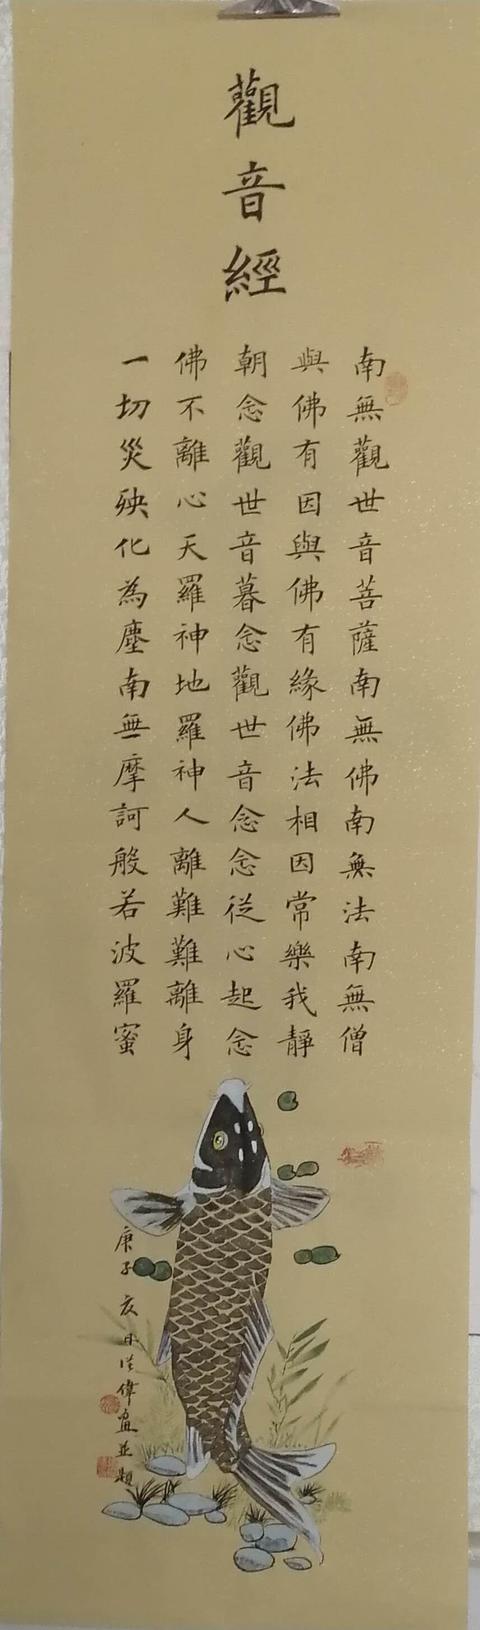 觀音經
南無觀世音菩薩南無佛南無法南無僧
與佛有因與佛有緣佛法相因常樂我靜
朝念觀世音暮念觀世音念念從心起念
佛不離心天羅神地羅神人離難難離身
一切災殃化為塵南無摩訶般若波羅蜜
庚子亥月偉畫並題